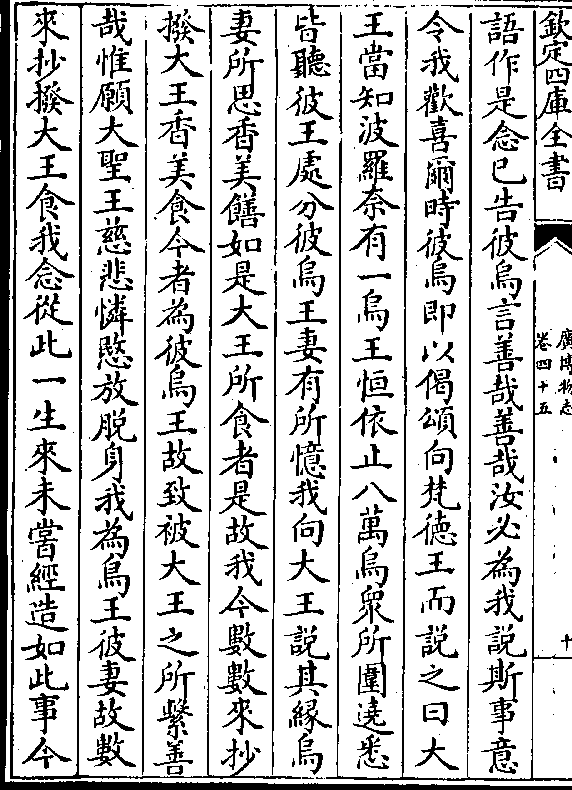 欽定四庫全書
廣博物志
卷四十五
十
語作是念已告彼烏言善哉善哉汝必為我說斯事意
令我歡喜爾時彼烏即以偈頌向梵德王而說之曰大
王當知波羅奈有一烏王恒依止八萬烏衆所圍遶悉
皆聽彼王處分彼烏王妻有所憶我向大王說其緣烏
妻所思香美饍如是大王所食者是故我今數數來抄
撥大王香美食今者為彼烏王故致被大王之所繫善
哉惟願大聖王慈悲憐愍放脫身我為烏王彼妻故數
來抄撥大王食我念從此一生來未嘗經造如此事今